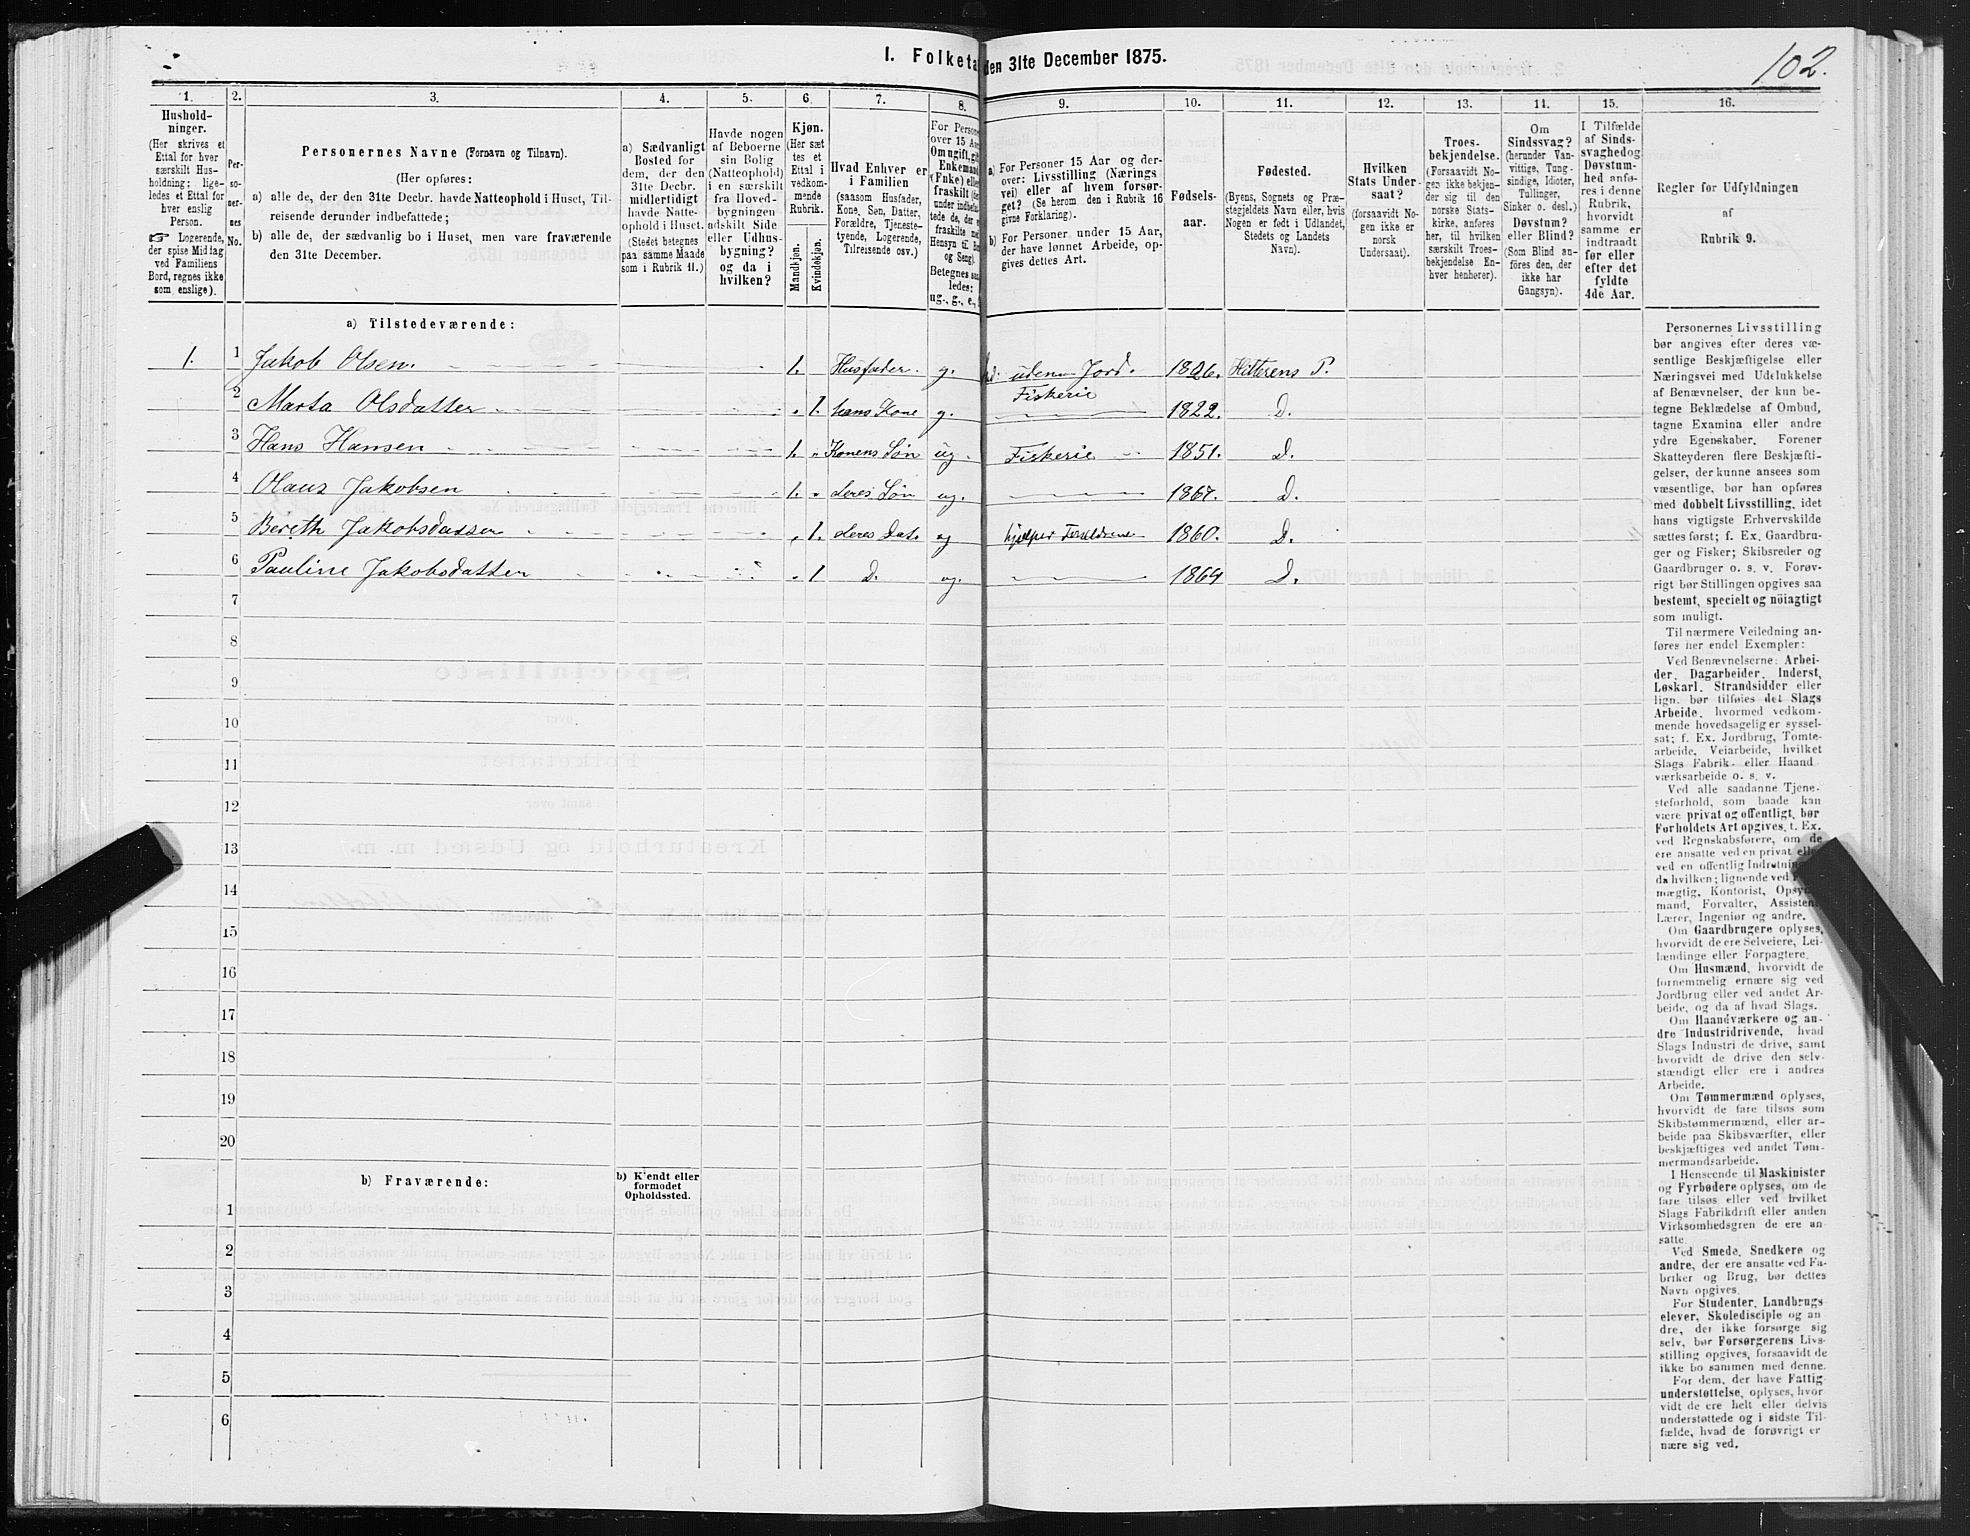 I. Folketa
den 31te December 1875.
102.
1.
Hushold-
ninger.
(Her skrives et
Ettal for hver
særskilt Hus-
holdning; lige-
ledes et Ettal for
hver enslig
Person.
☞ Logerende,
der spise Middag
ved Familiens
Bord, regnes ikke
som enslige).
2.
Per-
so-
ner-
nes
No.
3.
Personernes Navne (Fornavn og Tilnavn).
(Her opføres:
a) alle de, der den 31te Decbr. havde Natteophold i Huset, Til-
reisende derunder indbefattede;
b) alle de, der sædvanlig bo i Huset, men vare fraværende
den 31te December.
4.
a) Sædvanligt
Bosted for
dem, der den
31te Decbr.
midlertidigt
havde Natte-
ophold i Huset.
(Stedet betegnes
paa samme Maade
som i Rubrik 11.)
5.
Havde nogen
af Beboerne
sin Bolig
(Natteophold)
i en særskilt
fra Hoved-
bygningen
adskilt Side
eller Udhus-
bygning?
og da i
hvilken?
6.
Kjøn.
(Her sæt
tes et
Ettal i
vedkom-
mende
Rubrik.
Mandkjøn.
Kvindekjøn.
7.
Hvad Enhver er
i Familien
(saasom Husfader,
Kone, Søn, Datter,
Forældre, Tjeneste-
tyende, Logerende,
Tilreisende osv.)
8.
For Person
over 15 Aa
Om ugift, gif
Enkemand
(Enke) eller
fraskilt
Betegnes saa
ledes:
ug., g., e.,
9.
a) For Personer 15 Aar og der-
over: Livsstilling (Nærings
vei) eller af hvem forsør-
get? (Se herom den i Rubrik 16
givne Forklaring).
b) For Personer under 15 Aar,
der have lønnet Arbeide, op-
gives dettes Art.
10.
Fødsels-
aar.
11.
Fødested.
(Byens, Sognets og Præ-
stegjeldets Navn eller, hvis
Nogen er født i Udlandet,
Stedets og Landets
Navn).
12.
Hvilken
Stats Under-
saat?
(forsaavidt No-
gen ikke er
norsk
Undersaat).
13.
Troes-
bekjendelse.
(Forsaavidt No-
gen ikke bekjen-
der sig til den
norske Stats-
kirke, anføres
her, til hvilken
særskilt Troes-
bekjendelse En-
hver henhører).
14.
Om
Sindssvag?
(herunder Van-
vittige, Tung-
sindige, Idioter,
Tullinger,
Sinker o. desl.)
Døvstum?
eller Blind?
(Som Blind an-
føres den, der
ikke har
Gangsyn).
15.
I Tilfælde
af Sinds-
svaghed og
Døvstum-
hed anfø-
res i denne
Rubrik,
hvorvidt
samme er
indtraadt
før eller
efter det
fyldte
4de Aar.
16.
Regler for Udfyldningen
af
Rubrik 9.
a) Tilstedeværende:
1. 1 Jakob Olsen. 1. Husfader. g. uden Jord. Fiskerie 1826. Hitterens P.
2 Marta Olsdatter 1. hans Kone g. 1822. D.
3 Hans Hansen 1. Konens Søn ug. Fiskerie 1851. D.
4 Olaus Jakobsen 1. deres Søn ug. 1867. D.
5 Bereth Jakobsdatter 1. deres Dat. ug hjelper Forældrene 1860. D.
6 Pauline Jakobsdatter 1 D. ug. 1864 D.
7
8
9
10
11
12
13
14
15
16
17
18
19
20
b) Fraværende:
b) Kjendt eller
formodet
Opholdssted.
1
2
3
4
5
6
Personernes Livsstilling
bør angives efter deres væ-
sentlige Beskjæftigelse eller
Næringsvei med Udelukkelse
af Benævnelser, der kun be-
tegne Beklædelse af Ombud,
tagne Examina eller andre
ydre Egenskaber. Forener
Skatteyderen flere Beskjæfti-
gelser, der kunne ansees som
væsentlige, bør han opføres
med dobbelt Livsstilling, idet
hans vigtigste Erhvervskilde
sættes først; f. Ex. Gaardbru-
ger og Fisker; Skibsreder og
Gaardbruger o. s. v. Forøv-
rigt bør Stillingen opgives saa
bestemt, specielt og nöiagtigt
som muligt.
Til nærmere Veiledning an-
føres her endel Exempler:
Ved Benævnelserne: Arbei-
der, Dagarbeider, Inderst,
Løskarl, Strandsidder eller
lign. bør tilføies det Slags
Arbeide, hvormed vedkom-
mende hovedsagelig er syssel-
sat; f. Ex. Jordbrug, Tomte-
arbeide, Veiarbeide, hvilket
Slags Fabrik- eller Haand
værksarbeide o. s. v.
Ved alle saadanne Tjene-
steforhold, som baade kan
være privat og offentligt, bør
Forholdets Art opgives, t. Ex.
ved Regnskabsførere, om de
ere ansatte ved en privat eller
ved en offentlig Indretning
da hvilken; lignende ved
mægtig, Kontorist, Opsyns-
mand, Forvalter, Assistent,
Lærer, Ingeniør og andre.
Om Gaardbrugere oplyses,
hvorvidt de ere Selveiere, Lei-
lændinge eller Forpagtere.
Om Husmænd, hvorvidt de
fornemmelig ernære sig ved
Jordbrug eller ved andet Ar-
beide, og da af hvad Slags.
Om Haandværkere og an-
dre Industridrivende, hvad
Slags Industri de drive, samt
hvorvidt de drive den selv-
stændigt eller ere i andres
Arbeide.
Om Tømmermænd oplyses,
hvorvidt de fare tilsøs som
Skibstømmermænd, eller ar-
beide paa Skibsværfter, eller
beskjæftiges ved andet Tøm-
mermandsarbeide.
I Henseende til Maskinister
og Fyrbødere oplyses, om de
fare tilsøs eller ved hvilket
Slags Fabrikdrift eller anden
Virksomhedsgren de ere an-
satte.
Ved Smede, Snedkere og
andre, der ere ansatte ved Fa-
briker og Brug, bør dettes
Navn opgives.
For Studenter, Landbrugs
elever, Skoledisciple og an
dre, der ikke forsørge sig
selv, bør Forsørgerens Livs-
stilling opgives, forsaavidt de
ikke bo sammen med denne.
For dem, der have Fattig
understøttelse, oplyses, hvor
vidt de ere helt eller delvis
understøttede og i sidste Til-
fælde, hvad de forøvrigt er
nære sig ved.